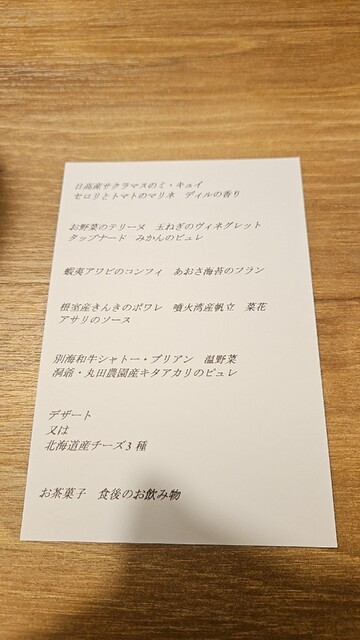 日高産サクラマスのミ・キュイ
セロリとトマトのマリネ　ディルの香り
お野菜のテリーヌ　玉ねぎのヴィネグレット
タップナード　みかんのピュレ
蝦夷アワビのコンフィ　あおさ海苔のフラン
根室産きんきのポワレ　噴火湾産帆立　菜花
アサリのソース
別海和牛シャトー・ブリアン　温野菜
洞爺・丸田農園産キタアカリのピュレ
デザート
又は
北海道産チーズ3種
お茶菓子　食後のお飲み物